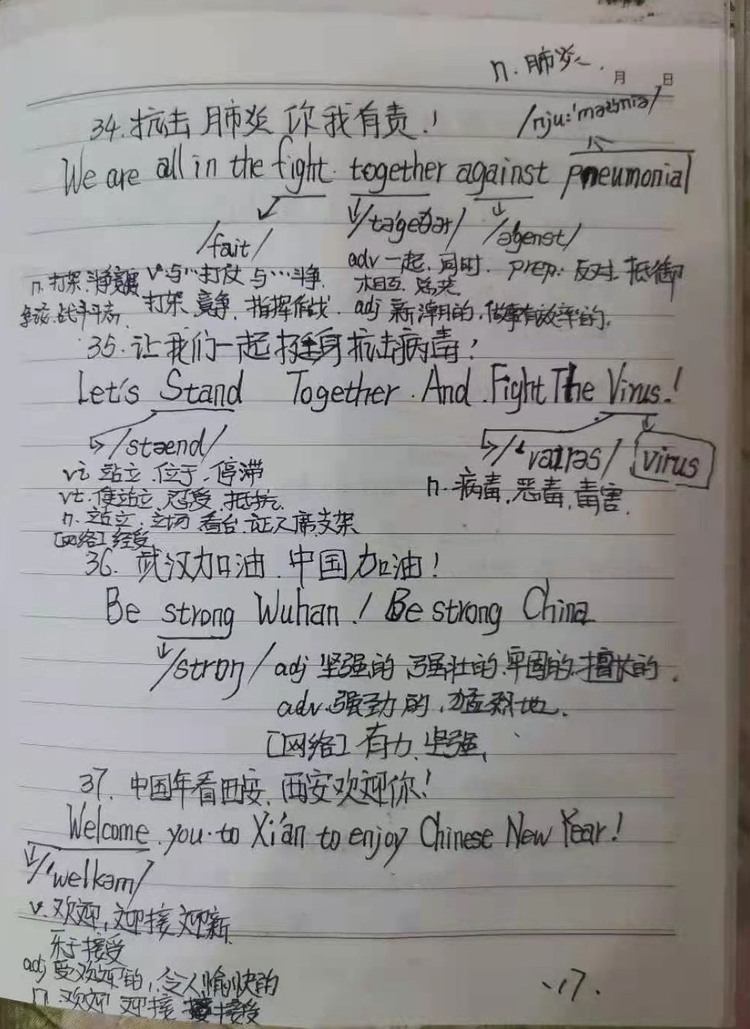 n. 肺炎 月 日
34. 抗击肺炎 你我有责!
/nju:'məʊniə/
We are all in the fight together against pneumonial
/fait/ /təgeðər/ /əgenst/
n. 打架 斗争 竞赛 v 与…打仗 与…斗争 adv 一起, 同时. prep: 反对, 抵御
争论, 战斗 斗志 打架, 竞争, 指挥作战 相互
adj 新潮的, 做事有效率的,
35. 让我们一起挺身抗击病毒!
Let's Stand Together And Fight The Virus!
/stænd/ /'vaɪrəs/ virus
vi 站立, 位于, 停滞 n. 病毒, 恶毒, 毒害.
vt. 使站立 忍受 抵抗
n. 站立, 立场 看台, 证人席, 支架
[网络] 经受
36. 武汉加油, 中国加油!
Be strong Wuhan! Be strong China
/strɒŋ/ adj 坚强的, 强壮的, 牢固的, 擅长的,
adv. 强劲的, 猛烈地.
[网络] 有力, 坚强,
37. 中国年看西安, 西安欢迎你!
Welcome you to Xi'an to enjoy Chinese New Year!
/'welkəm/
v. 欢迎, 迎接, 迎新
乐于接受
adj 受欢迎的, 令人愉快的
n 欢迎 迎接 接受
17.